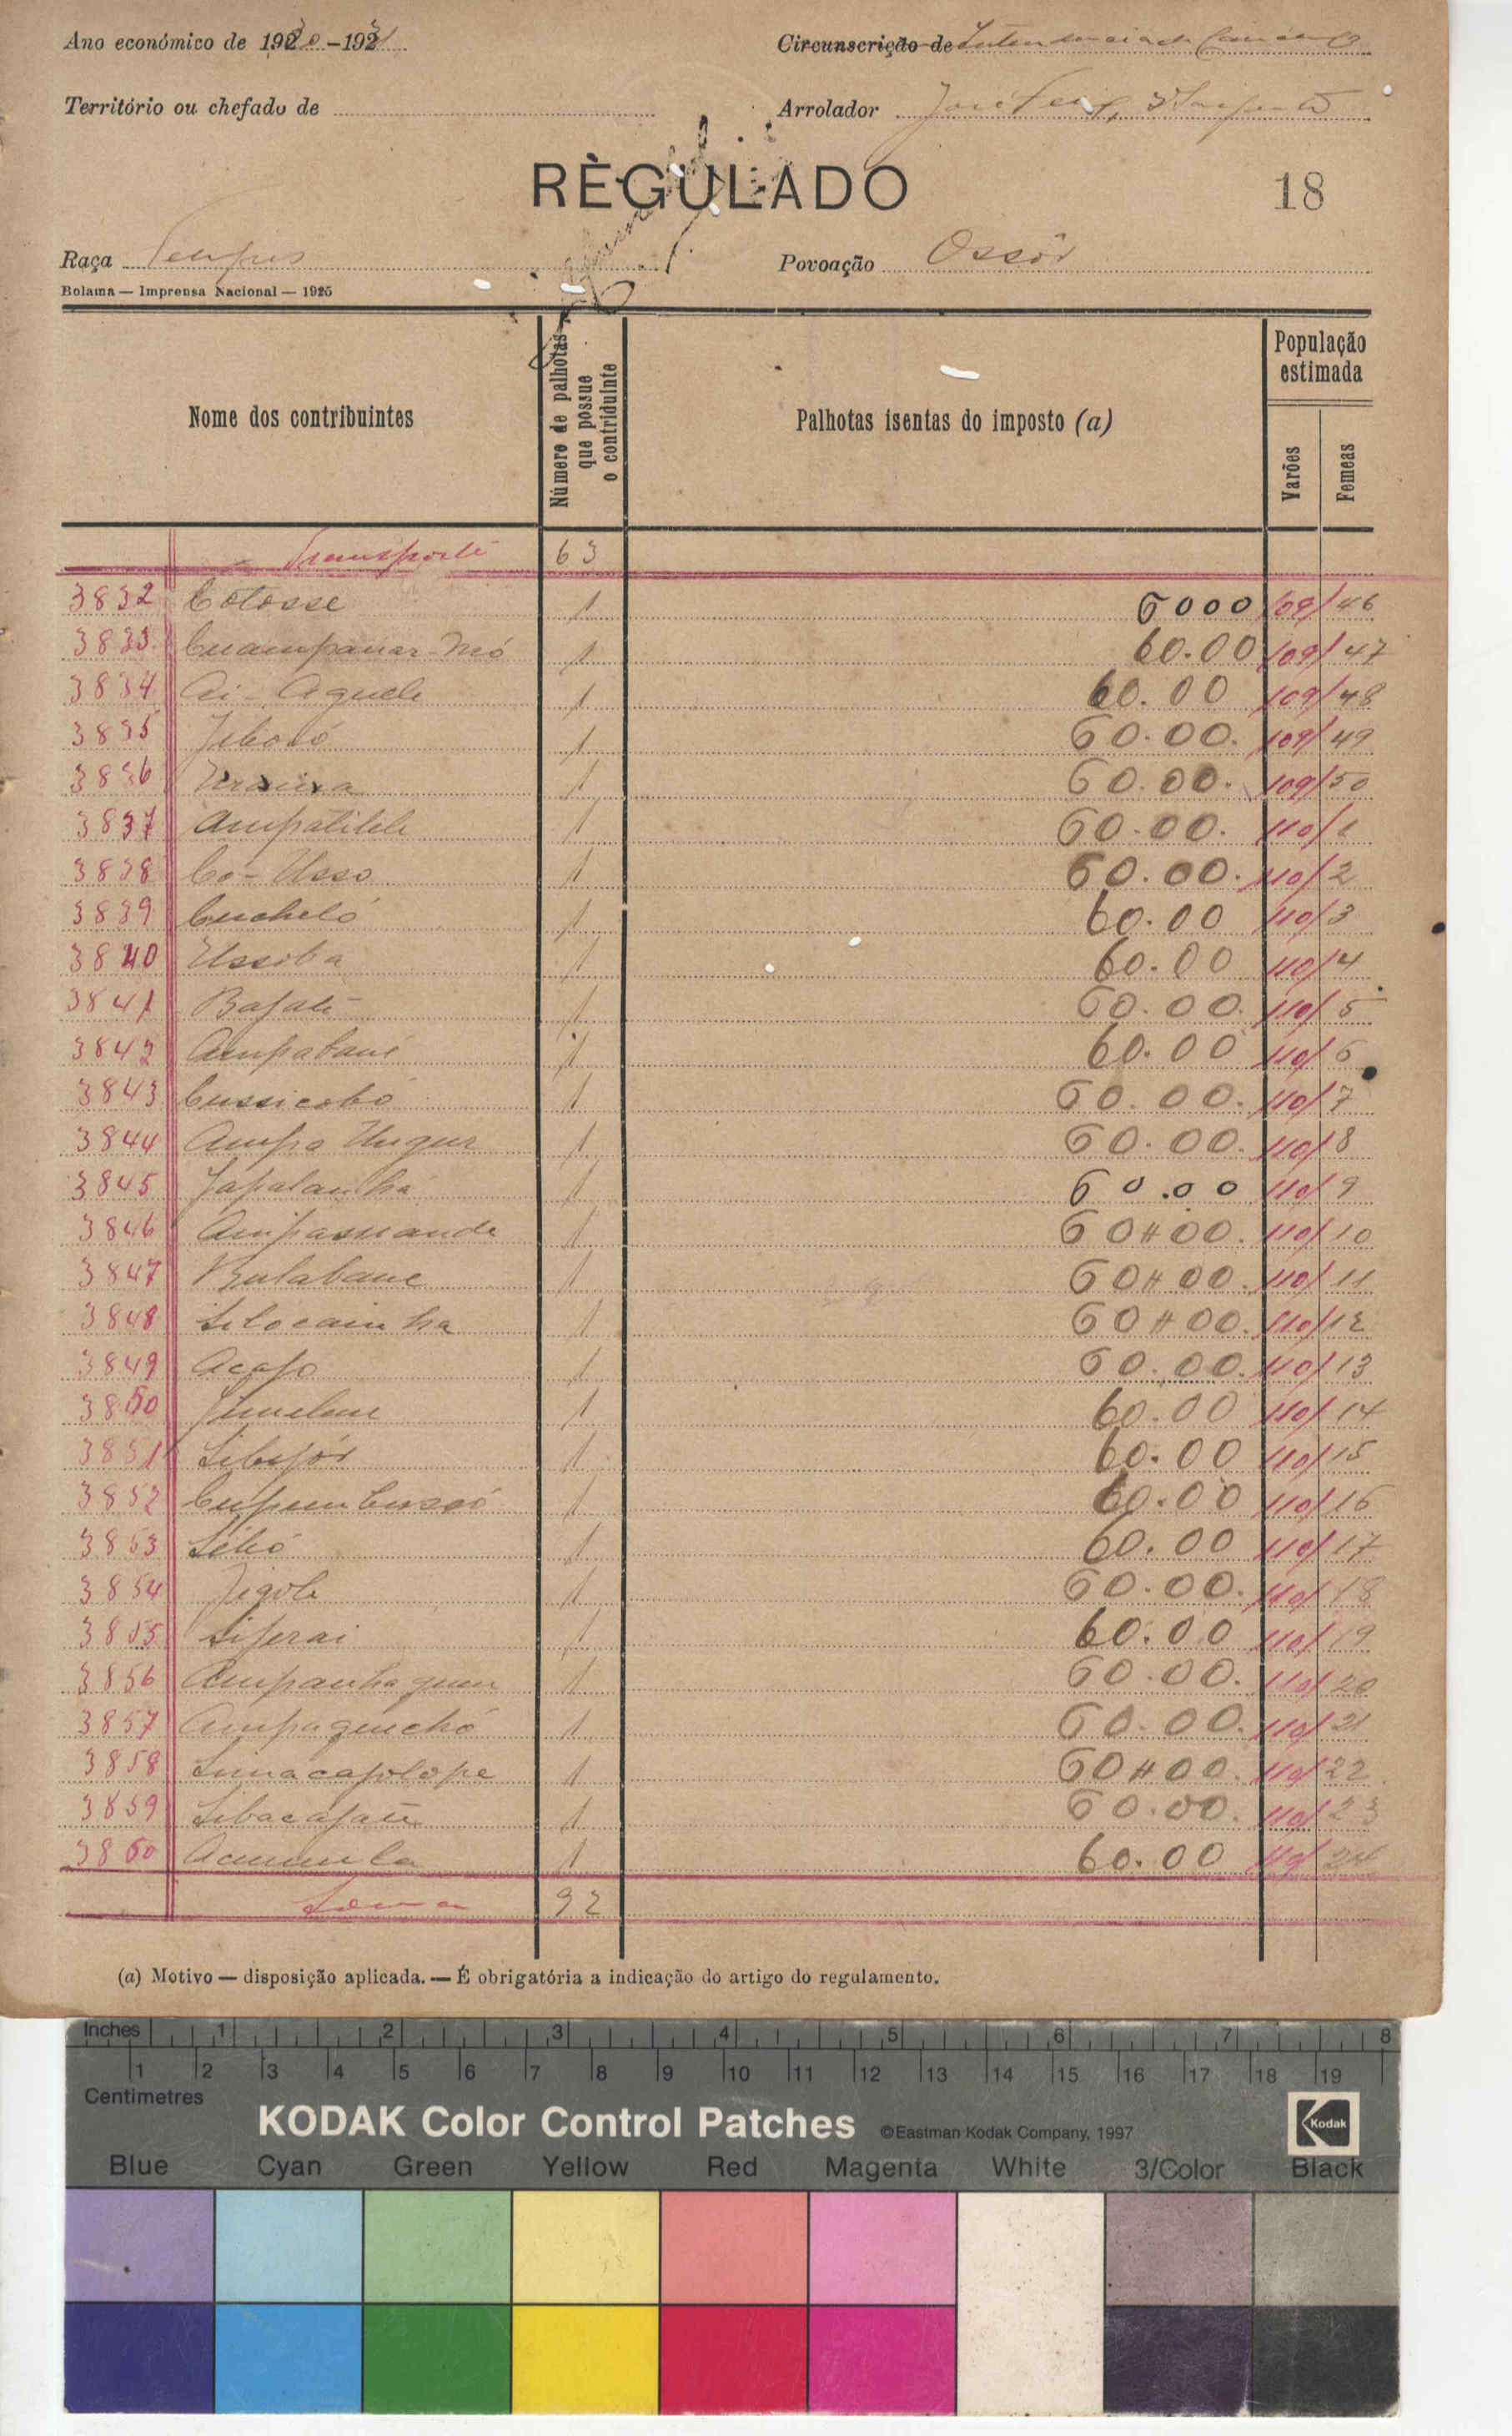 Ano económico de 1930-1931
Circunscrição de Intendencia de Canchungo
Território ou chefado de
Arrolador José 2º Sargento
RÈGULADO
18
Raça
Povoação Ossôr
Bolama — Imprensa Nacional — 1925
Nome dos contribuintes
Número de palhotas que possue o contribuinte
Palhotas isentas do imposto (a)
População estimada
Varões
Femeas
Transporte 63
3832 Cotosse 1 6000 109/46
3833 Cuampanar-Mó 1 60.00 109/47
3834 Ai-Aquele 1 60.00 109/48
3835 1 60.00. 109/49
3836 1 60.00. 109/50
3837 Ampatilele 1 60.00. 110/1
3838 Có-Usso 1 60.00. 110/2
3839 Cucheló 1 60.00 110/3
3840 Ussoba 1 60.00 110/4
3841 Bafate 1 60.00. 110/5
3842 Ampabané 1 60.00 110/6
3843 Cussicobó 1 60.00. 110/7
3844 Ampa Ungur 1 60.00. 110/8
3845 Japalanhá 1 60.00 110/9
3846 Ampasnande 1 60#00. 110/10
3847 Bulabane 1 60#00. 110/11
3848 Silocainha 1 60#00. 110/12
3849 Acapo 1 60.00. 110/13
3850 1 60.00 110/14
3851 1 60.00 110/15
3852 1 60.00 110/16
3853 1 60.00 110/17
3854 Jigole 1 60.00. 110/18
3855 Siferai 1 60.00 110/19
3856 Ampanhaguen 1 60.00. 110/20
3857 Ampaquechó 1 60.00. 110/21
3858 Simacapolope 1 60#00. 110/22
3859 Sibacapate 1 60.00. 110/23
3860 1 60.00 110/24
Soma 92
(a) Motivo — disposição aplicada. — É obrigatória a indicação do artigo do regulamento.
Inches 1 2 3 4 5 6 7 8
1 2 3 4 5 6 7 8 9 10 11 12 13 14 15 16 17 18 19
Centimetres
KODAK Color Control Patches ©Eastman Kodak Company, 1997 Kodak
Blue Cyan Green Yellow Red Magenta White 3/Color Black